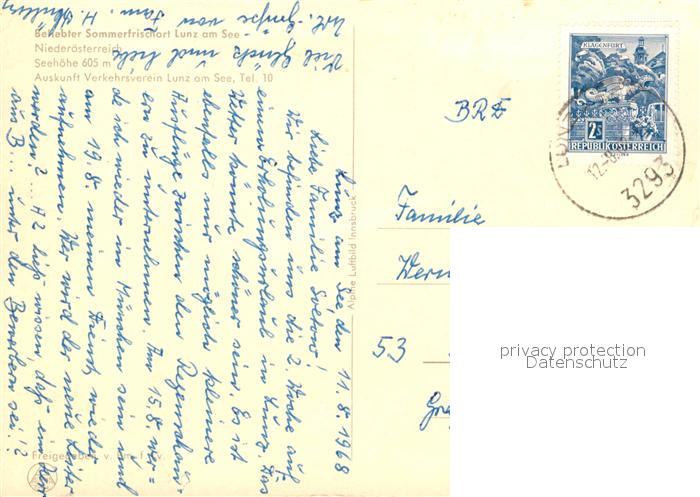 Beliebter Sommerfrischort Lunz am See
Niederösterreich
Seehöhe 605 m
Auskunft Verkehrsverein Lunz am See, Tel. 10
Lunz am See, den 11.8.1968
Liebe Familie
Wir befinden uns die 2. Woche auf
einem Erholungsurlaub in Lunz. Das
Wetter könnte schöner sein. Es ist
ebenfalls nur möglich kleinere
Ausflüge zwischen den Regenschau-
ern zu unternehmen. Am 15.8. wer-
de ich wieder in München sein und
am 19.8. meinen Dienst wieder
aufnehmen. Wer wird der neue Leiter
werden? ... H2 ließ wissen, daß ein Herr
aus B... unter den Bewerbern sei!?
Viel Glück und
Grüße von Fam. H.
Alpine Luftbild Innsbruck
Freigegeben v.
KLAGENFURT
2S
REPUBLIK ÖSTERREICH
LUNZ
12.-8.
3293
BRD
Familie
Wern
53
Gra
privacy protection
Datenschutz